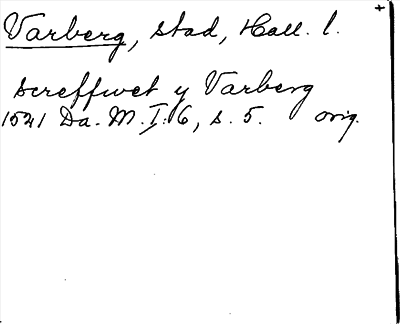 Varberg, stad, Hall. l.
screffwet y Varberg
1541 Da. M. I: 6, s. 5. orig.